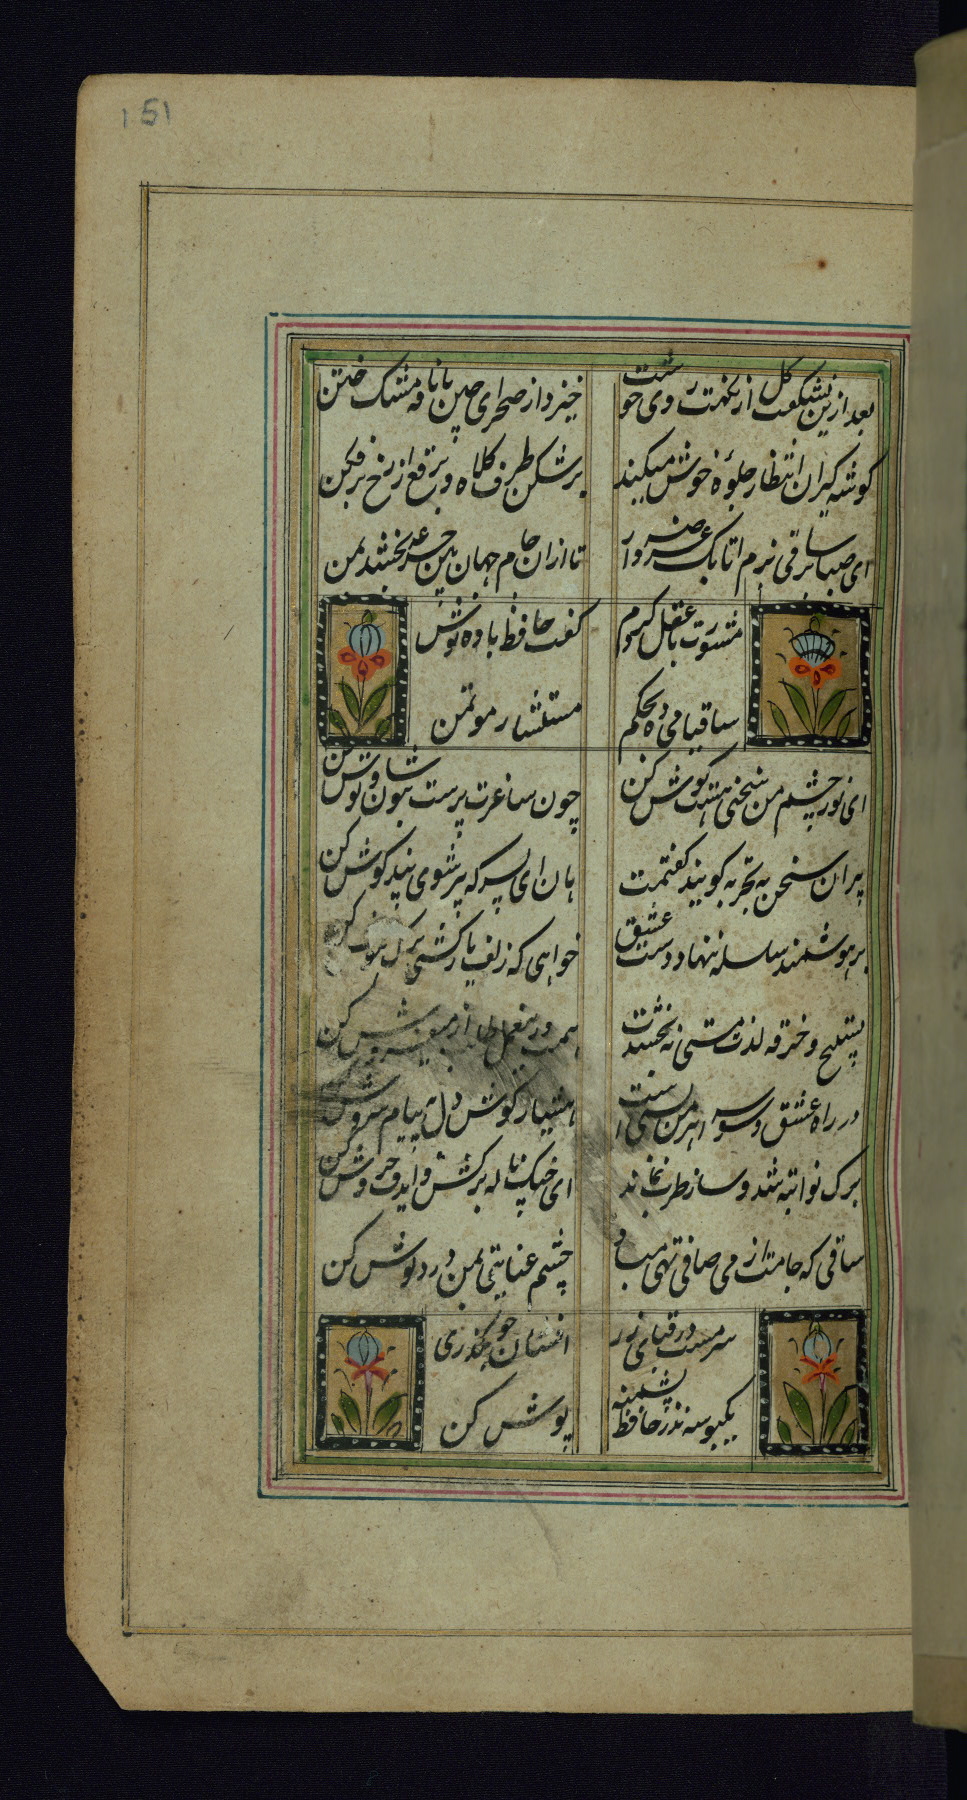 151
بعد ازین نشکفت گل از نکهت روی خوشت
خیزد از صحرای چین با نافه مشک ختن
گوشه گیران انتظار جلوه خوش میکنند
برشکن طرف کلاه و برقع از رخ برفکن
ای صبا بر ساقی بزم اتابک عرضه دار
تا ازان جام جهان بین جرعه بخشد بمن
مشورت با عقل کردم
گفت حافظ باده نوش
ساقیا می ده بحکم
مستشار موتمن
ای نور چشم من سخنی هست گوش کن
چون ساغرت پرست بنوشان و نوش کن
پیران سخن به تجربه گویند گفتمت
هان ای پسر که پیر شوی پند گوش کن
بر هوشمند سلسله ننهاد دست عشق
خواهی که زلف یار کشی ترک هوش کن
تسبیح و خرقه لذت مستی نه بخشدت
همت درین عمل طلب از میفروش کن
در راه عشق وسوسه اهرمن بسی است
هشیار گوش دل به پیام سروش کن
برک نوا تبه شد و ساز طرب نماند
ای چنک ناله برکش و ای دف خروش کن
ساقی که جامت از می صافی تهی مباد
چشم عنایتی بمن دردنوش کن
سرمست در قبای زر
افشان چو بگذری
یکبوسه نذر حافظ پشمینه
پوش کن